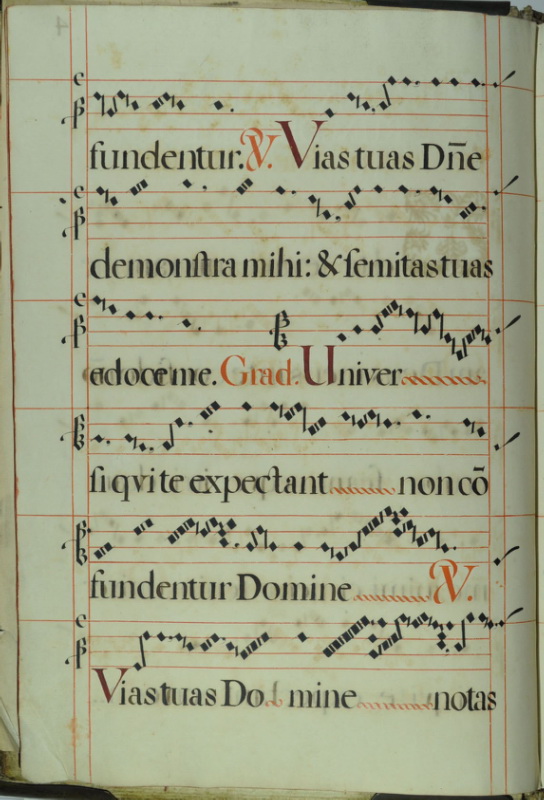 fundentur. ℣. Vias tuas Dñe
demonstra mihi: & semitas tuas
edoce me. Grad. Univer
si qui te expectant non cō
fundentur Domine ℣.
Vias tuas Do mine notas